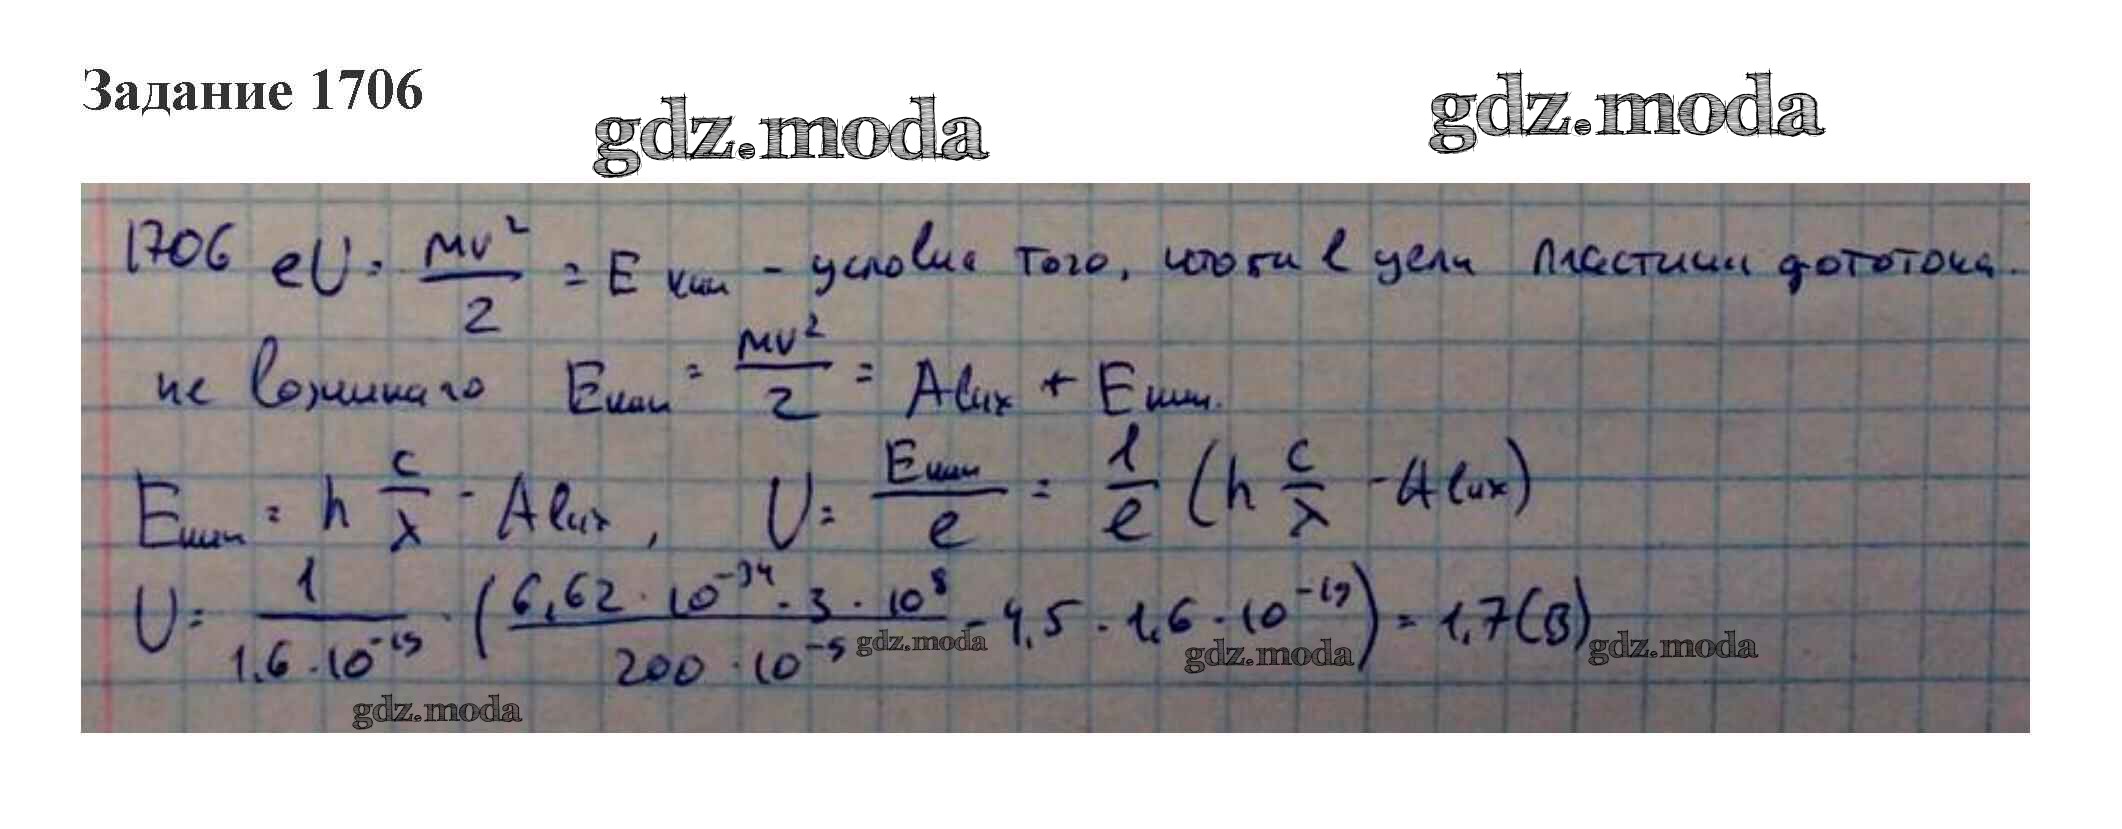 Задание 1706
gdz.moda
gdz.moda
1706 eU = mv²/2 = E кин - условие того, чтобы в цепи пластины фототока
не возникало Eкин = mv²/2 = Aвых + Eкин.
Eкин = h c/λ - Aвых, U = Eкин/e = 1/e (h c/λ - Aвых)
U = 1/(1,6 · 10⁻¹⁹) · (6,62 · 10⁻³⁴ · 3 · 10⁸/(200 · 10⁻⁹) - 4,5 · 1,6 · 10⁻¹⁹) = 1,7 (В)
gdz.moda
gdz.moda
gdz.moda
gdz.moda